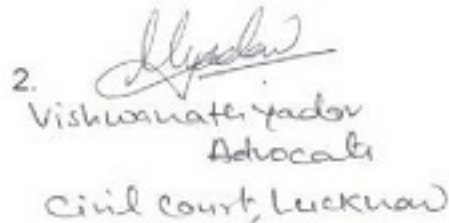 2. Vyadav
Vishwanath yadav
Advocate
Civil Court, Lucknow